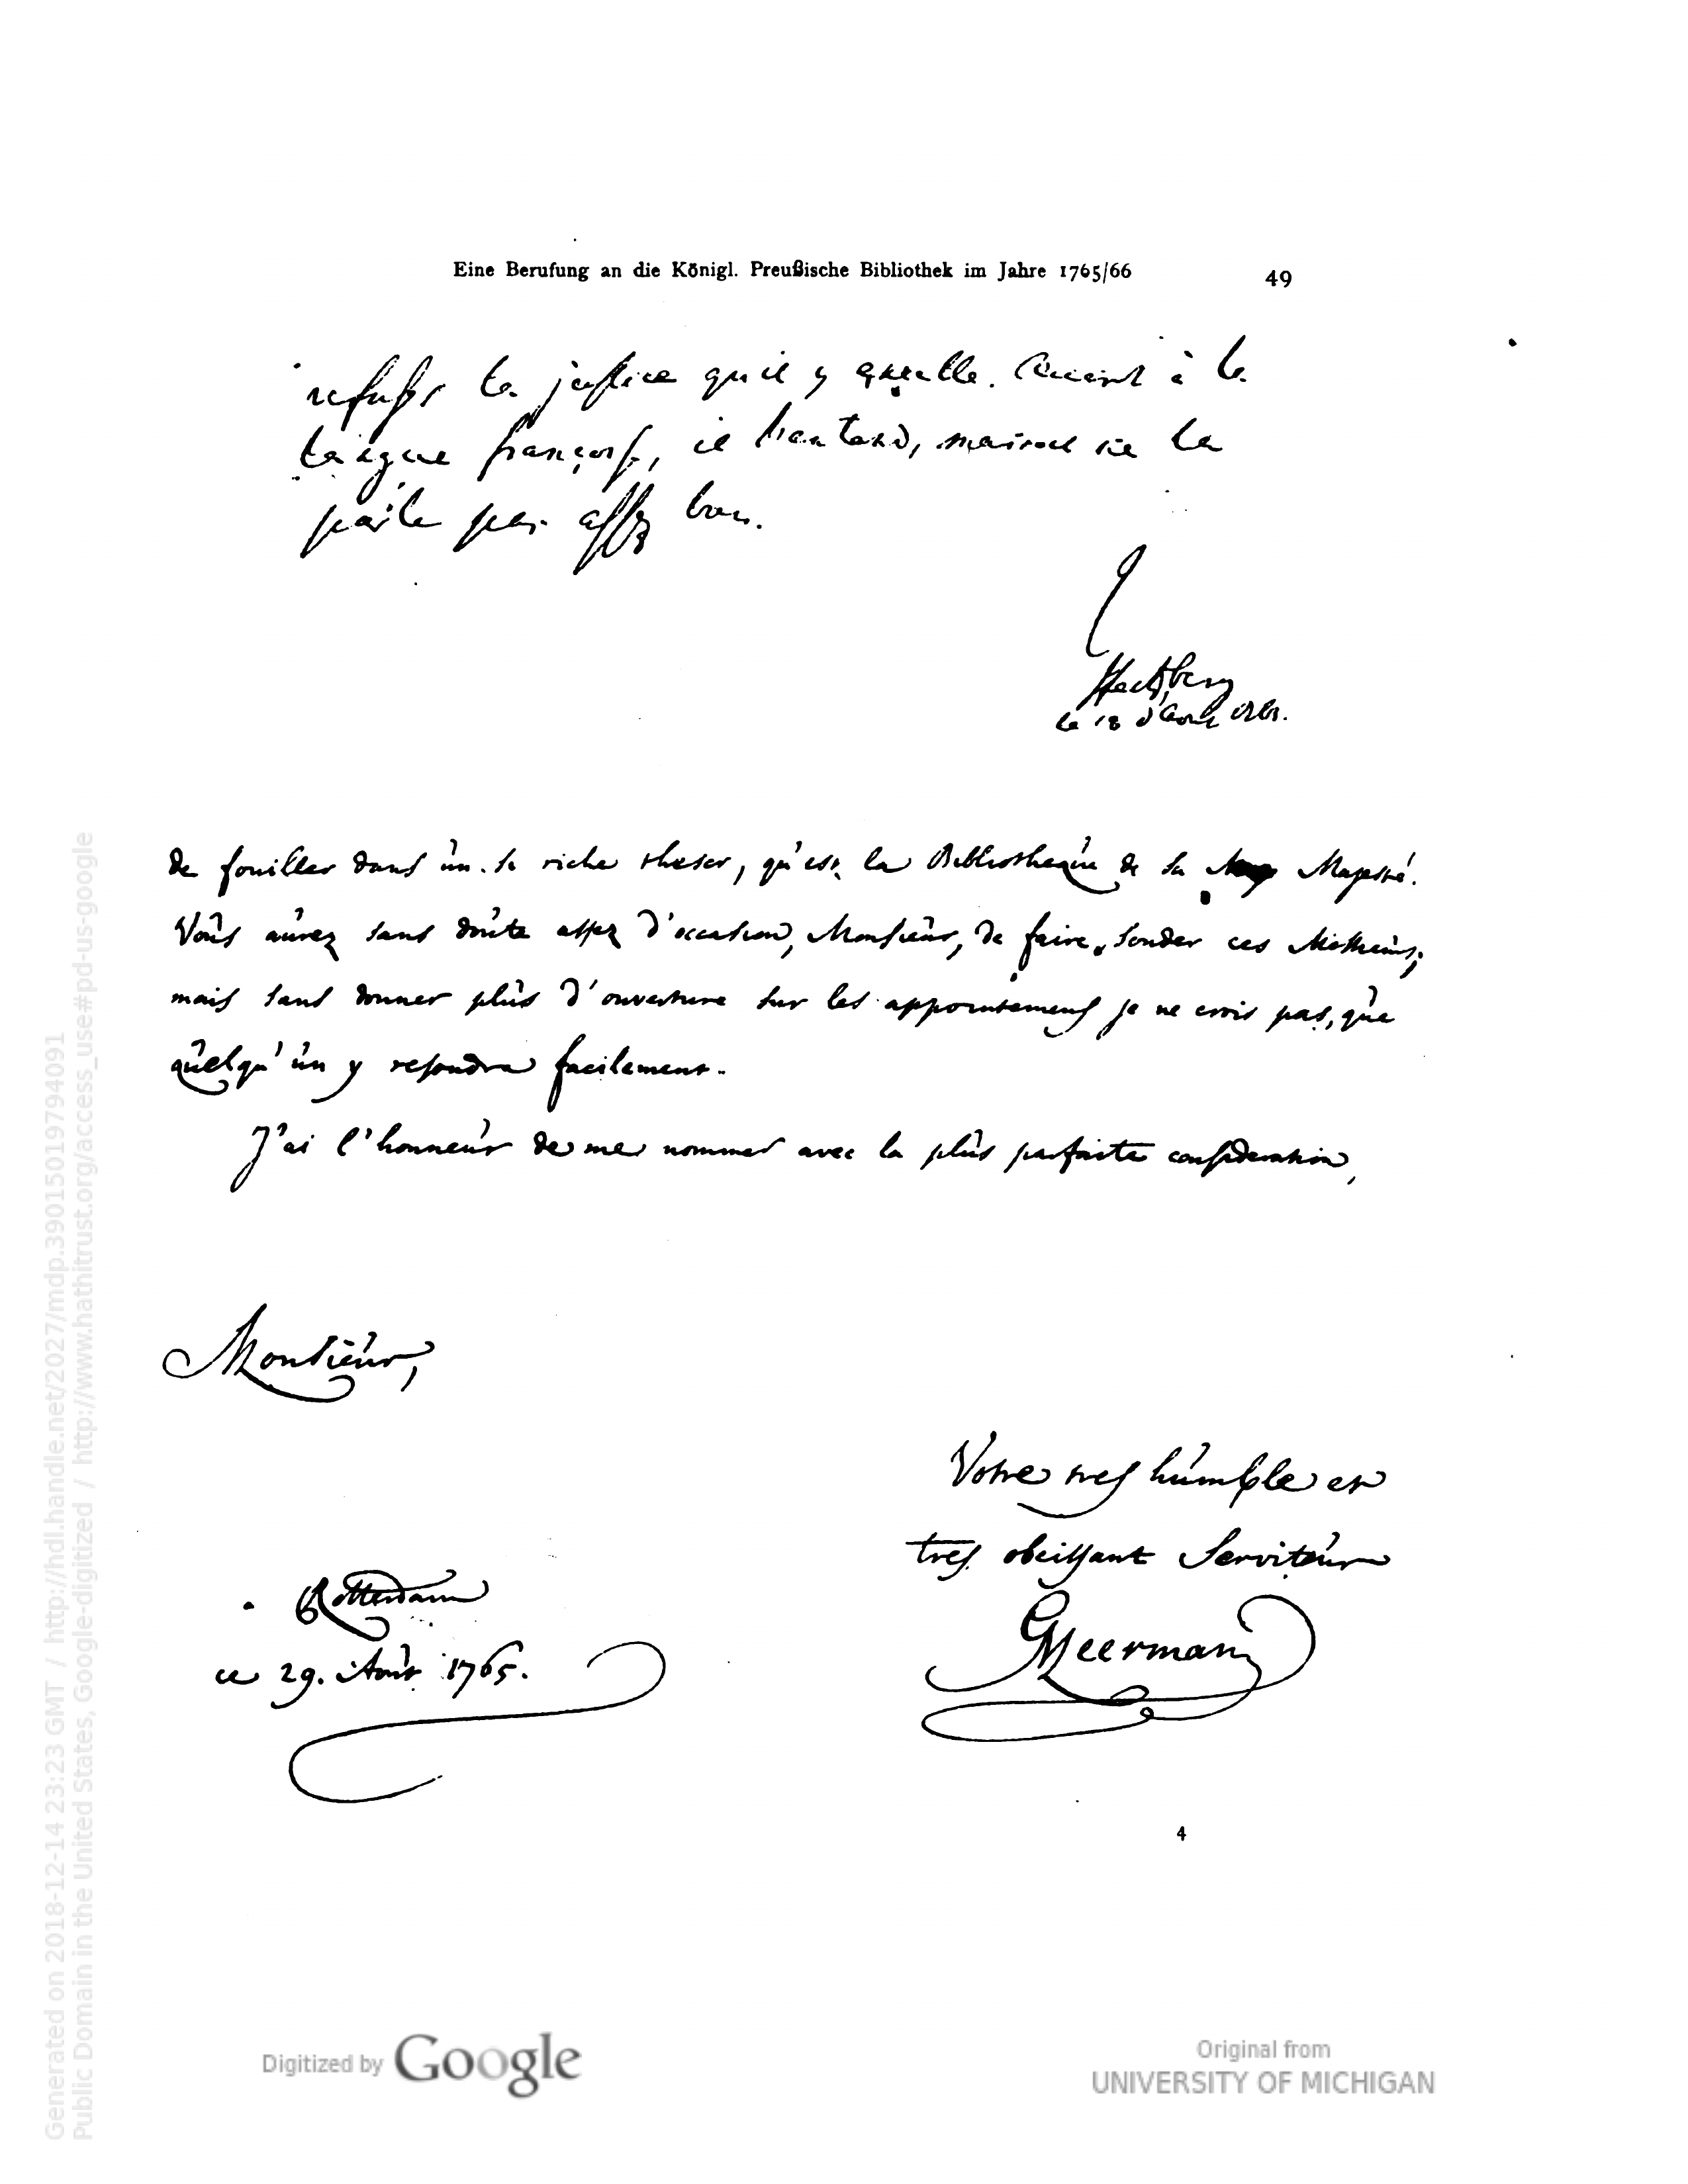 Eine Berufung an die Königl. Preußische Bibliothek im Jahre 1765/66
49
la justice qu'il y à la
langue françoise, il l'entend, mais ne la
parle pas assez bien.
de fouiller dans ùn si riche thesor, qu'est la Bibliotheqùe de sa Majesté.
Voùs aùrez sans doùte assez d'occasion, Monsieùr, de faire sonder ces Messieùrs;
mais sans donner plùs d'ouverture sur les appointemens je ne crois pas, qùe
qùelqu'ùn y repondra facilement.
J'ai l'honneùr de me nommer avec la plùs parfaite consideration,
Monsieùr,
Votre tres hùmble et
tres obeissant Serviteùr
GMeerman
Rotterdam
ce 29. Aoùt 1765.
4
Generated on 2018-12-14 23:23 GMT / http://hdl.handle.net/2027/mdp.39015019794091
Public Domain in the United States, Google-digitized / http://www.hathitrust.org/access_use#pd-us-google
Digitized by Google
Original from
UNIVERSITY OF MICHIGAN